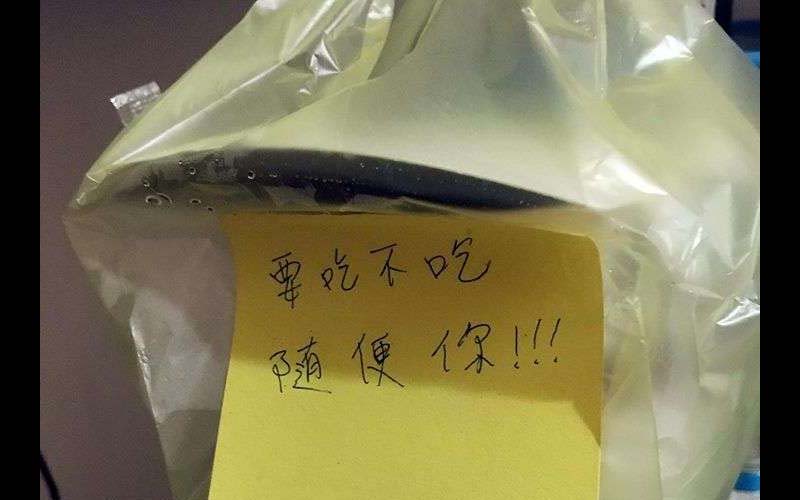 要吃不吃
隨便你!!!